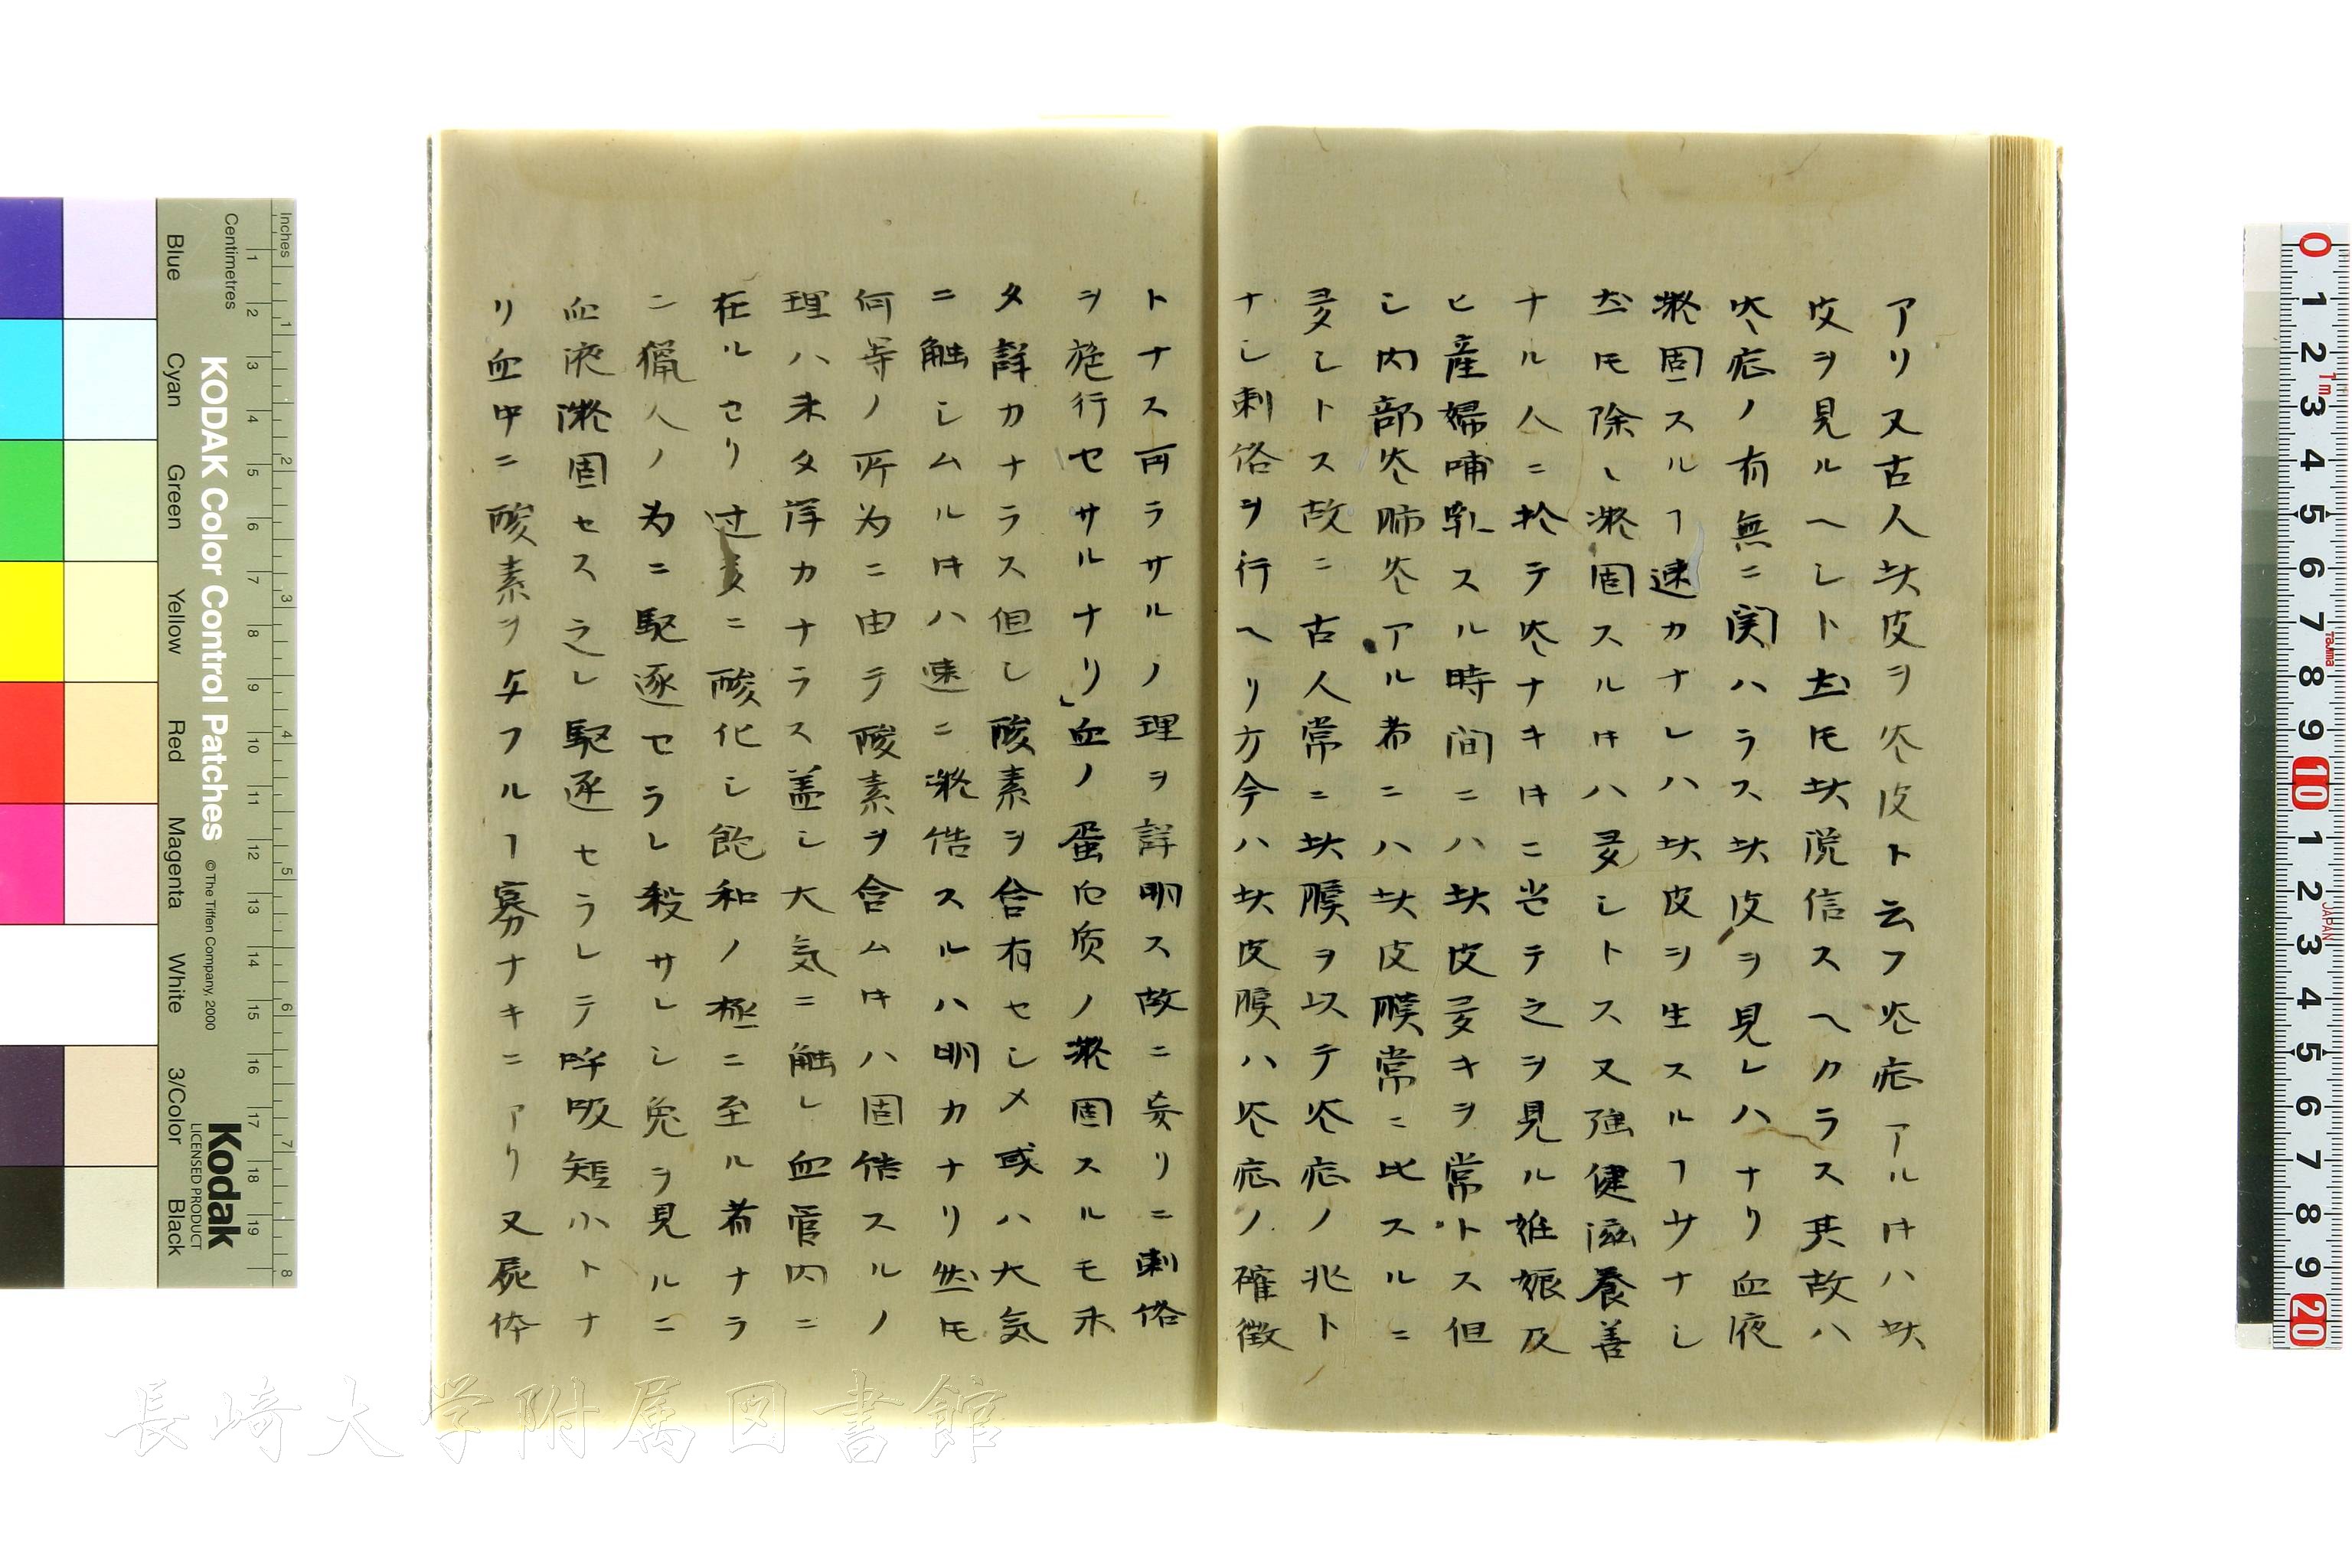 アリ又古人此皮ヲ炎皮ト云フ炎症アルキハ此
皮ヲ見ルヘシト雖モ此説信スヘカラス其故ハ
炎症ノ有無ニ関ハラス此皮ヲ見レハナリ血液
凝固スルヿ速カナレハ此皮ヲ生スルヿ少ナシ
雖モ除〻凝固スルキハ多シトス又強健滋養善
ナル人ニ於テ炎ナキキニ当テ之ヲ見ル姙娠及
ヒ産婦哺乳スル時間ニハ此皮多キヲ常トス但
シ内部炎肺炎アル者ニハ此皮膜常ニ比スルニ
多シトス故ニ古人常ニ此膜ヲ以テ炎症ノ兆ト
ナシ刺絡ヲ行ヘリ方今ハ此皮膜ハ炎症ノ確徴
トナス可ラサルノ理ヲ詳明ス故ニ妄リニ刺絡
ヲ施行セサルナリ」血ノ蛋白质ノ凝固スルモ未
タ詳カナラス但シ酸素ヲ含有セシメ或ハ大気
ニ触シムルキハ速ニ凝結スルハ明カナリ然モ
何等ノ所為ニ由テ酸素ヲ含ムキハ固結スルノ
理ハ未タ詳カナラス盖シ大気ニ触レ血管内ニ
在ルセリ过多ニ酸化シ飽和ノ極ニ至ル者ナラ
ン猟人ノ為ニ駆逐セラレ殺サレシ兎ヲ見ルニ
血液凝固セス之レ駆逐セラレテ呼吸短小トナ
リ血中ニ酸素ヲ与フルヿ寡ナキニアリ又屍体
KODAK Color Control Patches
© The Tiffen Company, 2000
Kodak
LICENSED PRODUCT
Inches
Centimetres
Blue
Cyan
Green
Yellow
Red
Magenta
White
3/Color
Black
長崎大学附属図書館